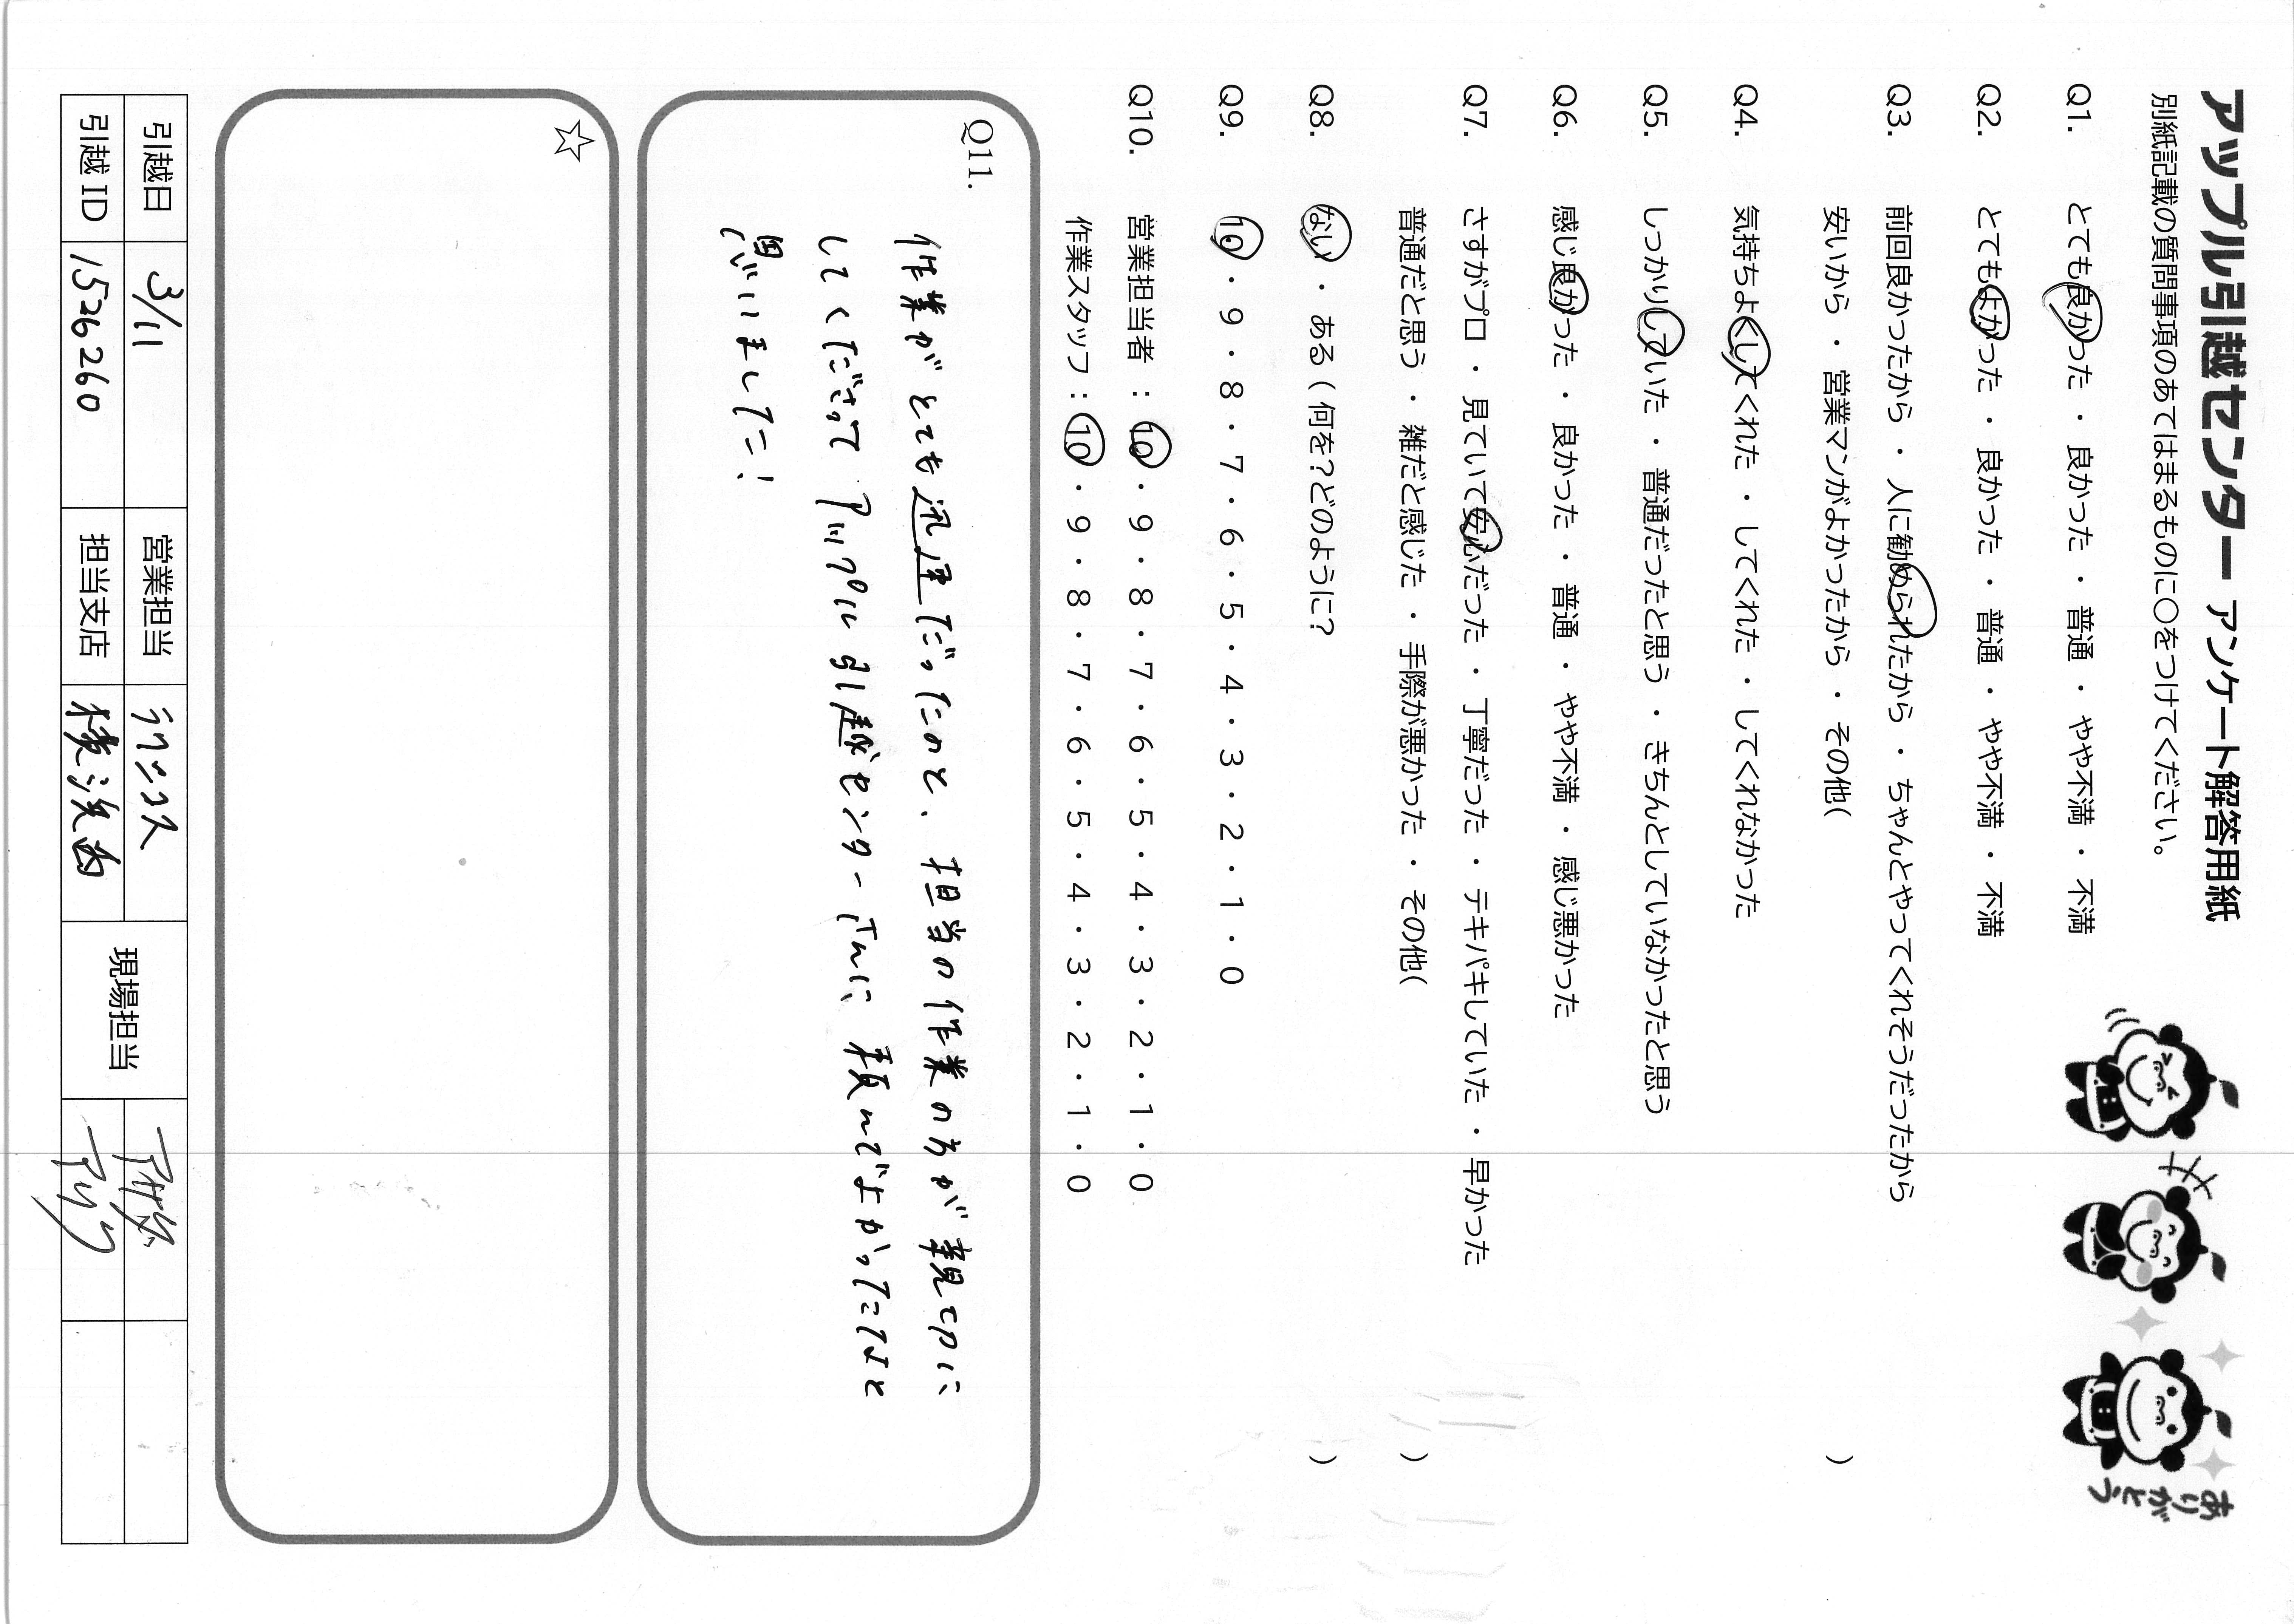 アップル引越センター アンケート解答用紙
別紙記載の質問事項のあてはまるものに○をつけてください。
ありがとう
Q1. とても良かった ・ 良かった ・ 普通 ・ やや不満 ・ 不満
Q2. とてもよかった ・ 良かった ・ 普通 ・ やや不満 ・ 不満
Q3. 前回良かったから ・ 人に勧められたから ・ ちゃんとやってくれそうだったから
安いから ・ 営業マンがよかったから ・ その他( )
Q4. 気持ちよくしてくれた ・ してくれた ・ してくれなかった
Q5. しっかりしていた ・ 普通だったと思う ・ きちんとしていなかったと思う
Q6. 感じ良かった ・ 良かった ・ 普通 ・ やや不満 ・ 感じ悪かった
Q7. さすがプロ ・ 見ていて安心だった ・ 丁寧だった ・ テキパキしていた ・ 早かった
普通だと思う ・ 雑だと感じた ・ 手際が悪かった ・ その他( )
Q8. ない ・ ある(何を?どのように? )
Q9. 10 ・ 9 ・ 8 ・ 7 ・ 6 ・ 5 ・ 4 ・ 3 ・ 2 ・ 1 ・ 0
Q10. 営業担当者 : 10 ・ 9 ・ 8 ・ 7 ・ 6 ・ 5 ・ 4 ・ 3 ・ 2 ・ 1 ・ 0
作業スタッフ : 10 ・ 9 ・ 8 ・ 7 ・ 6 ・ 5 ・ 4 ・ 3 ・ 2 ・ 1 ・ 0
Q11.
作業がとても迅速だったのと、担当の作業の方が親切に
してくださって アップル引越センターさんに 頼んでよかったなと
思いました!
☆
引越日 3/11 営業担当 現場担当
引越ID 1526260 担当支店 横浜西 アリタ